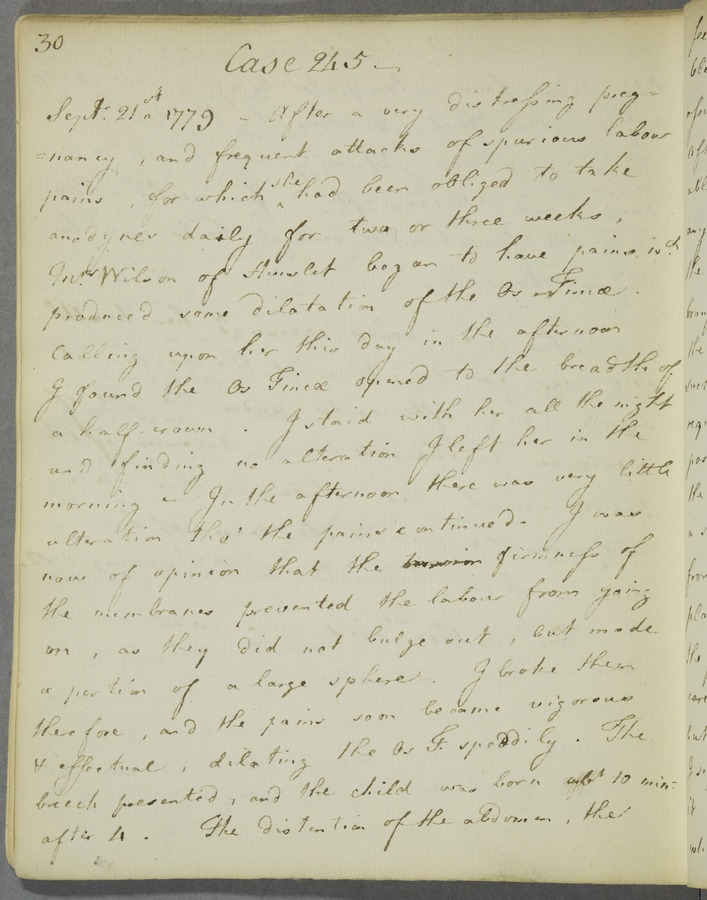 30
Case 245 -
Sept: 21st 1779 - After a very distressing preg=
=nancy, and frequent attacks of spurious labour
pains, for which she had been obliged to take
anodynes daily for two or three weeks,
Mrs Wilson of Hunslet began to have pains wch
produced some dilatation of the Os Tincæ.
Calling upon her this day in the afternoon
I found the Os Tincæ opened to the breadth of
a half-crown. I staid with her all the night
and finding no alteration I left her in the
morning - In the afternoon there was very little
alteration tho' the pains continued - I was
now of opinion that the firmness of
the membranes prevented the labour from going
on, as they did not bulge out, but made
a portion of a large sphere. I broke them
therefore, and the pains soon became vigorous
& effectual, dilating the Os T. speedily. The
breech presented, and the child was born abt 10 min:
after 4. The distention of the abdomen, the